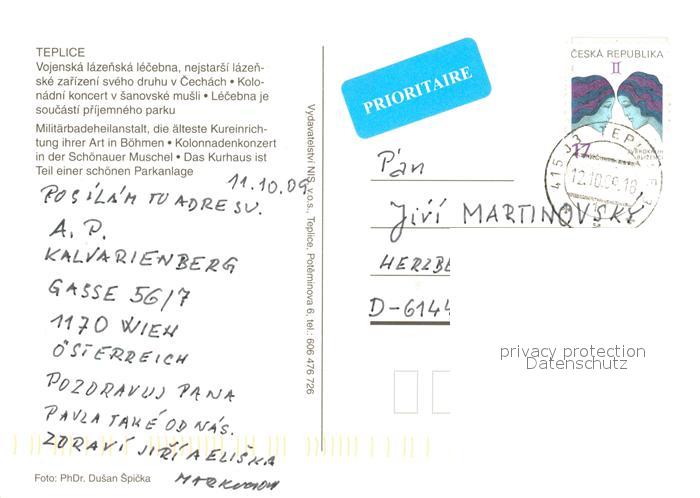 TEPLICE
Vojenská lázeňská léčebna, nejstarší lázeň-
ské zařízení svého druhu v Čechách • Kolo-
nádní koncert v šanovské mušli • Léčebna je
součástí příjemného parku
Militärbadeheilanstalt, die älteste Kureinrich-
tung ihrer Art in Böhmen • Kolonnadenkonzert
in der Schönauer Muschel • Das Kurhaus ist
Teil einer schönen Parkanlage
11.10.09
POSÍLÁM TU ADRESU.
A. P.
KALVARIENBERG
GASSE 56/7
1170 WIEN
ÖSTERREICH
POZDRAVUJ PANA
PAVLA TAKÉ OD NÁS.
ZDRAVÍ JIŘÍ A ELIŠKA
Foto: PhDr. Dušan Špička
Vydavatelství NIS, v.o.s., Teplice, Potěminova 6, tel.: 606 476 726
PRIORITAIRE
ČESKÁ REPUBLIKA
II
17
BLÍŽENCI
415 J3 TEPLICE 3
12.10.09.18
Pan
Jiří MARTINOVSKÝ
HERZBE
D-6144
privacy protection
Datenschutz